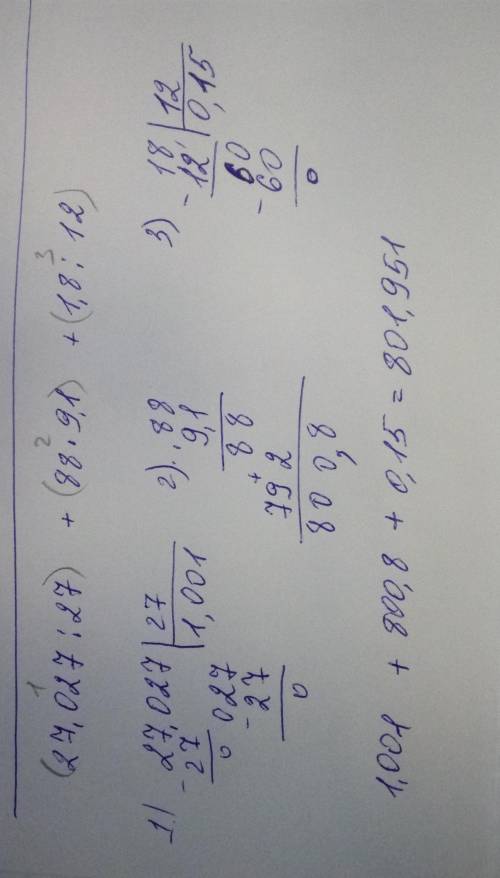 (27,027 : 27) + (88 · 9,1) + (1,8 : 12)
1 2 3
1) - 27,027 | 27
27 1,001
0 027
- 27
0
2) . 88
9,1
88
+
79 2
80 0,8
3) - 18 | 12
12 0,15
60
- 60
0
1,001 + 800,8 + 0,15 = 801,951